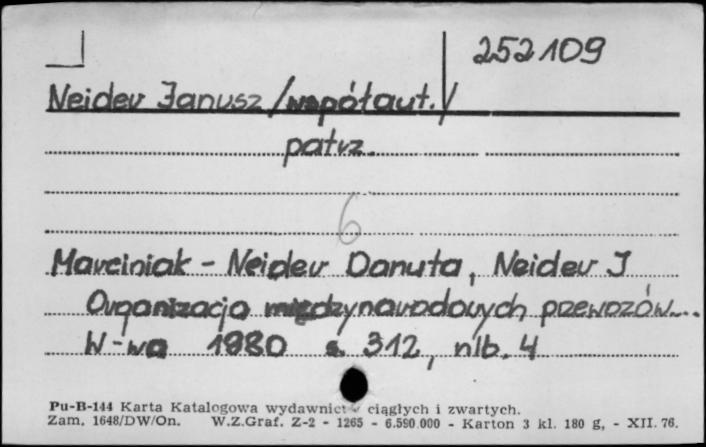 252109
Neider Janusz /współaut./
patrz
6
Marciniak - Neider Danuta, Neider J
Organizacja międzynarodowych przewozów...
W-wa 1980 s. 312, nlb. 4
Pu-B-144 Karta Katalogowa wydawnictw ciągłych i zwartych.
Zam. 1648/DW/On. W.Z.Graf. Z-2 - 1265 - 6.590.000 - Karton 3 kl. 180 g, - XII. 76.